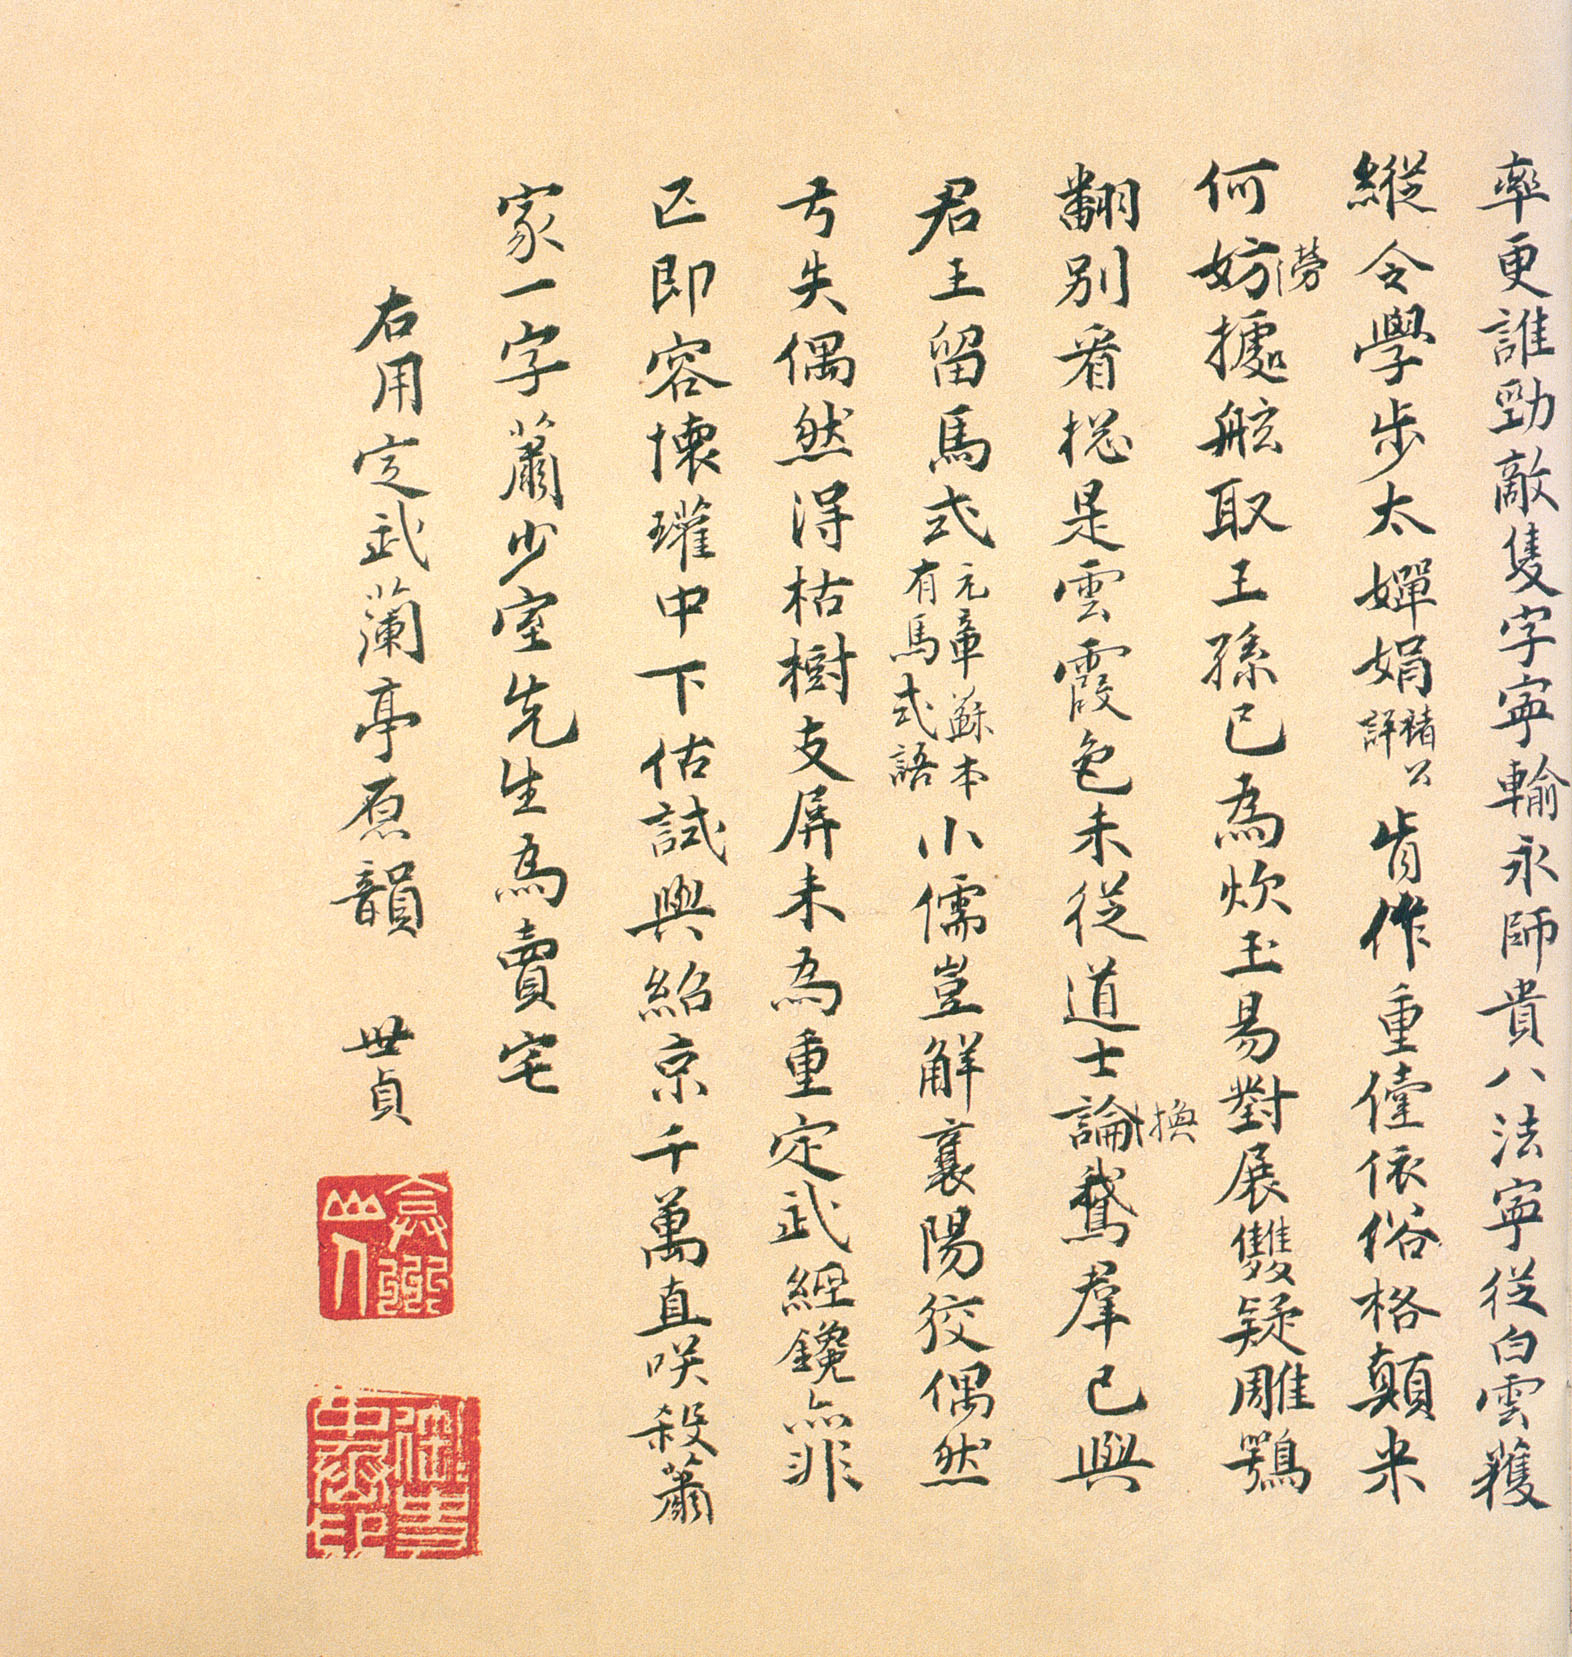 率更誰勁敵隻字寧輸永師貴八法寧從白雲獲
縱令學步太嬋娟褚公評肯作重儓依俗格顛米
何妨勞據舷取王孫已為炊玉易對展雙疑雕鶚
翻別看捴是雲霞色未從道士論換鵝羣已與
君王留馬式元章蘇本有馬式語小儒豈解襄陽狡偶然
弓失偶然得枯樹支屏未為重定武經鑱亦非
匹即容懷瓘中下估試與紹京千萬直咲殺蕭
家一字蕭少室先生為賣宅
右用定武蘭亭原韻 世貞
弇州山人